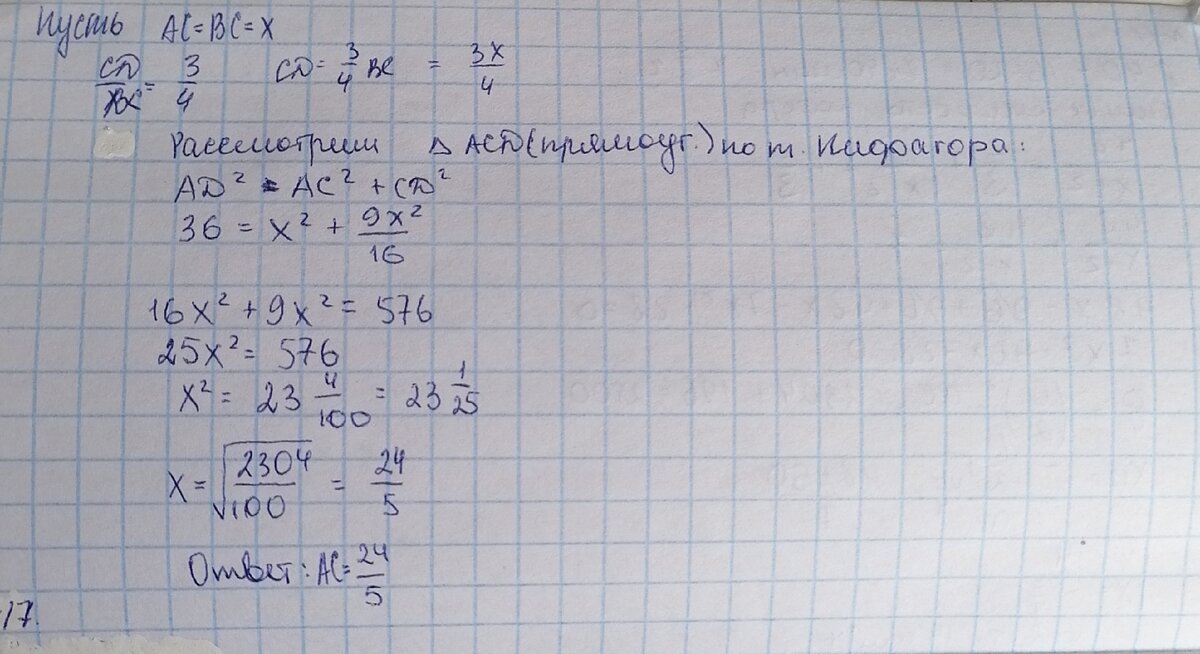 Пусть AC=BC=X
CD/BC = 3/4 CD= 3/4 BC = 3X/4
Рассмотрим Δ ACD(прямоуг.) по т. Пифагора:
AD² = AC² + CD²
36 = X² + 9X²/16
16X² + 9X² = 576
25X² = 576
X² = 23 4/100 = 23 1/25
X = √2304/100 = 24/5
Ответ: AC= 24/5
17.